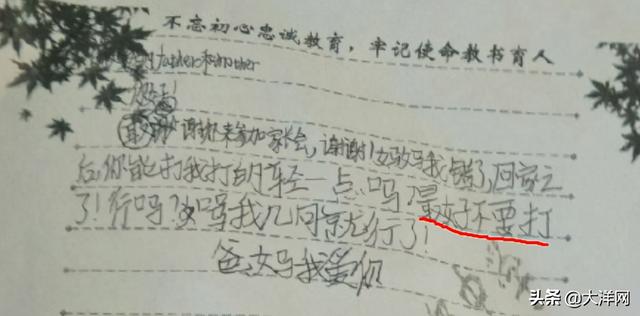 不忘初心忠诚教育，牢记使命教书育人
father和mother
谢谢你来参加家长会，谢谢！妈妈我错了，回家之
后，你能打我打的轻一点吗？最好不要打
了！行吗？骂我几句就行了！
爸妈我爱你
头条@大洋网